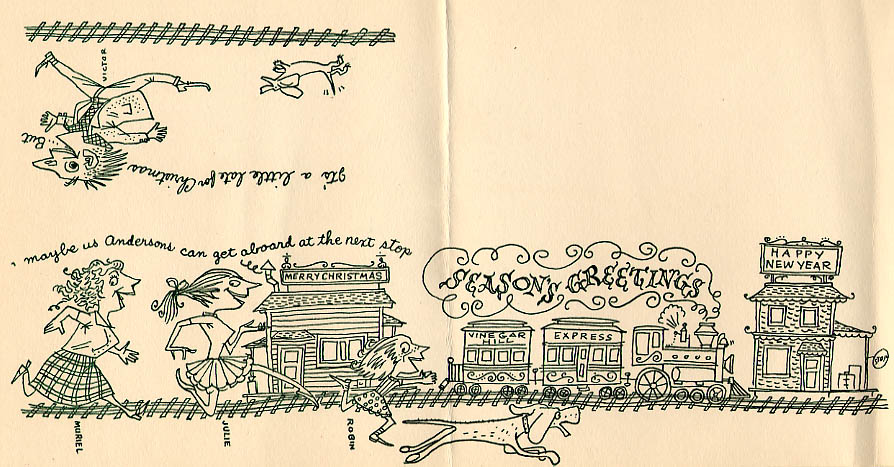 It's a little late for Christmas
But..
VICTOR
maybe us Andersons can get aboard at the next stop
MERRY CHRISTMAS
SEASON'S GREETINGS
HAPPY
NEW YEAR
VINEGAR
HILL
EXPRESS
STOP
MURIEL
JULIE
ROBIN